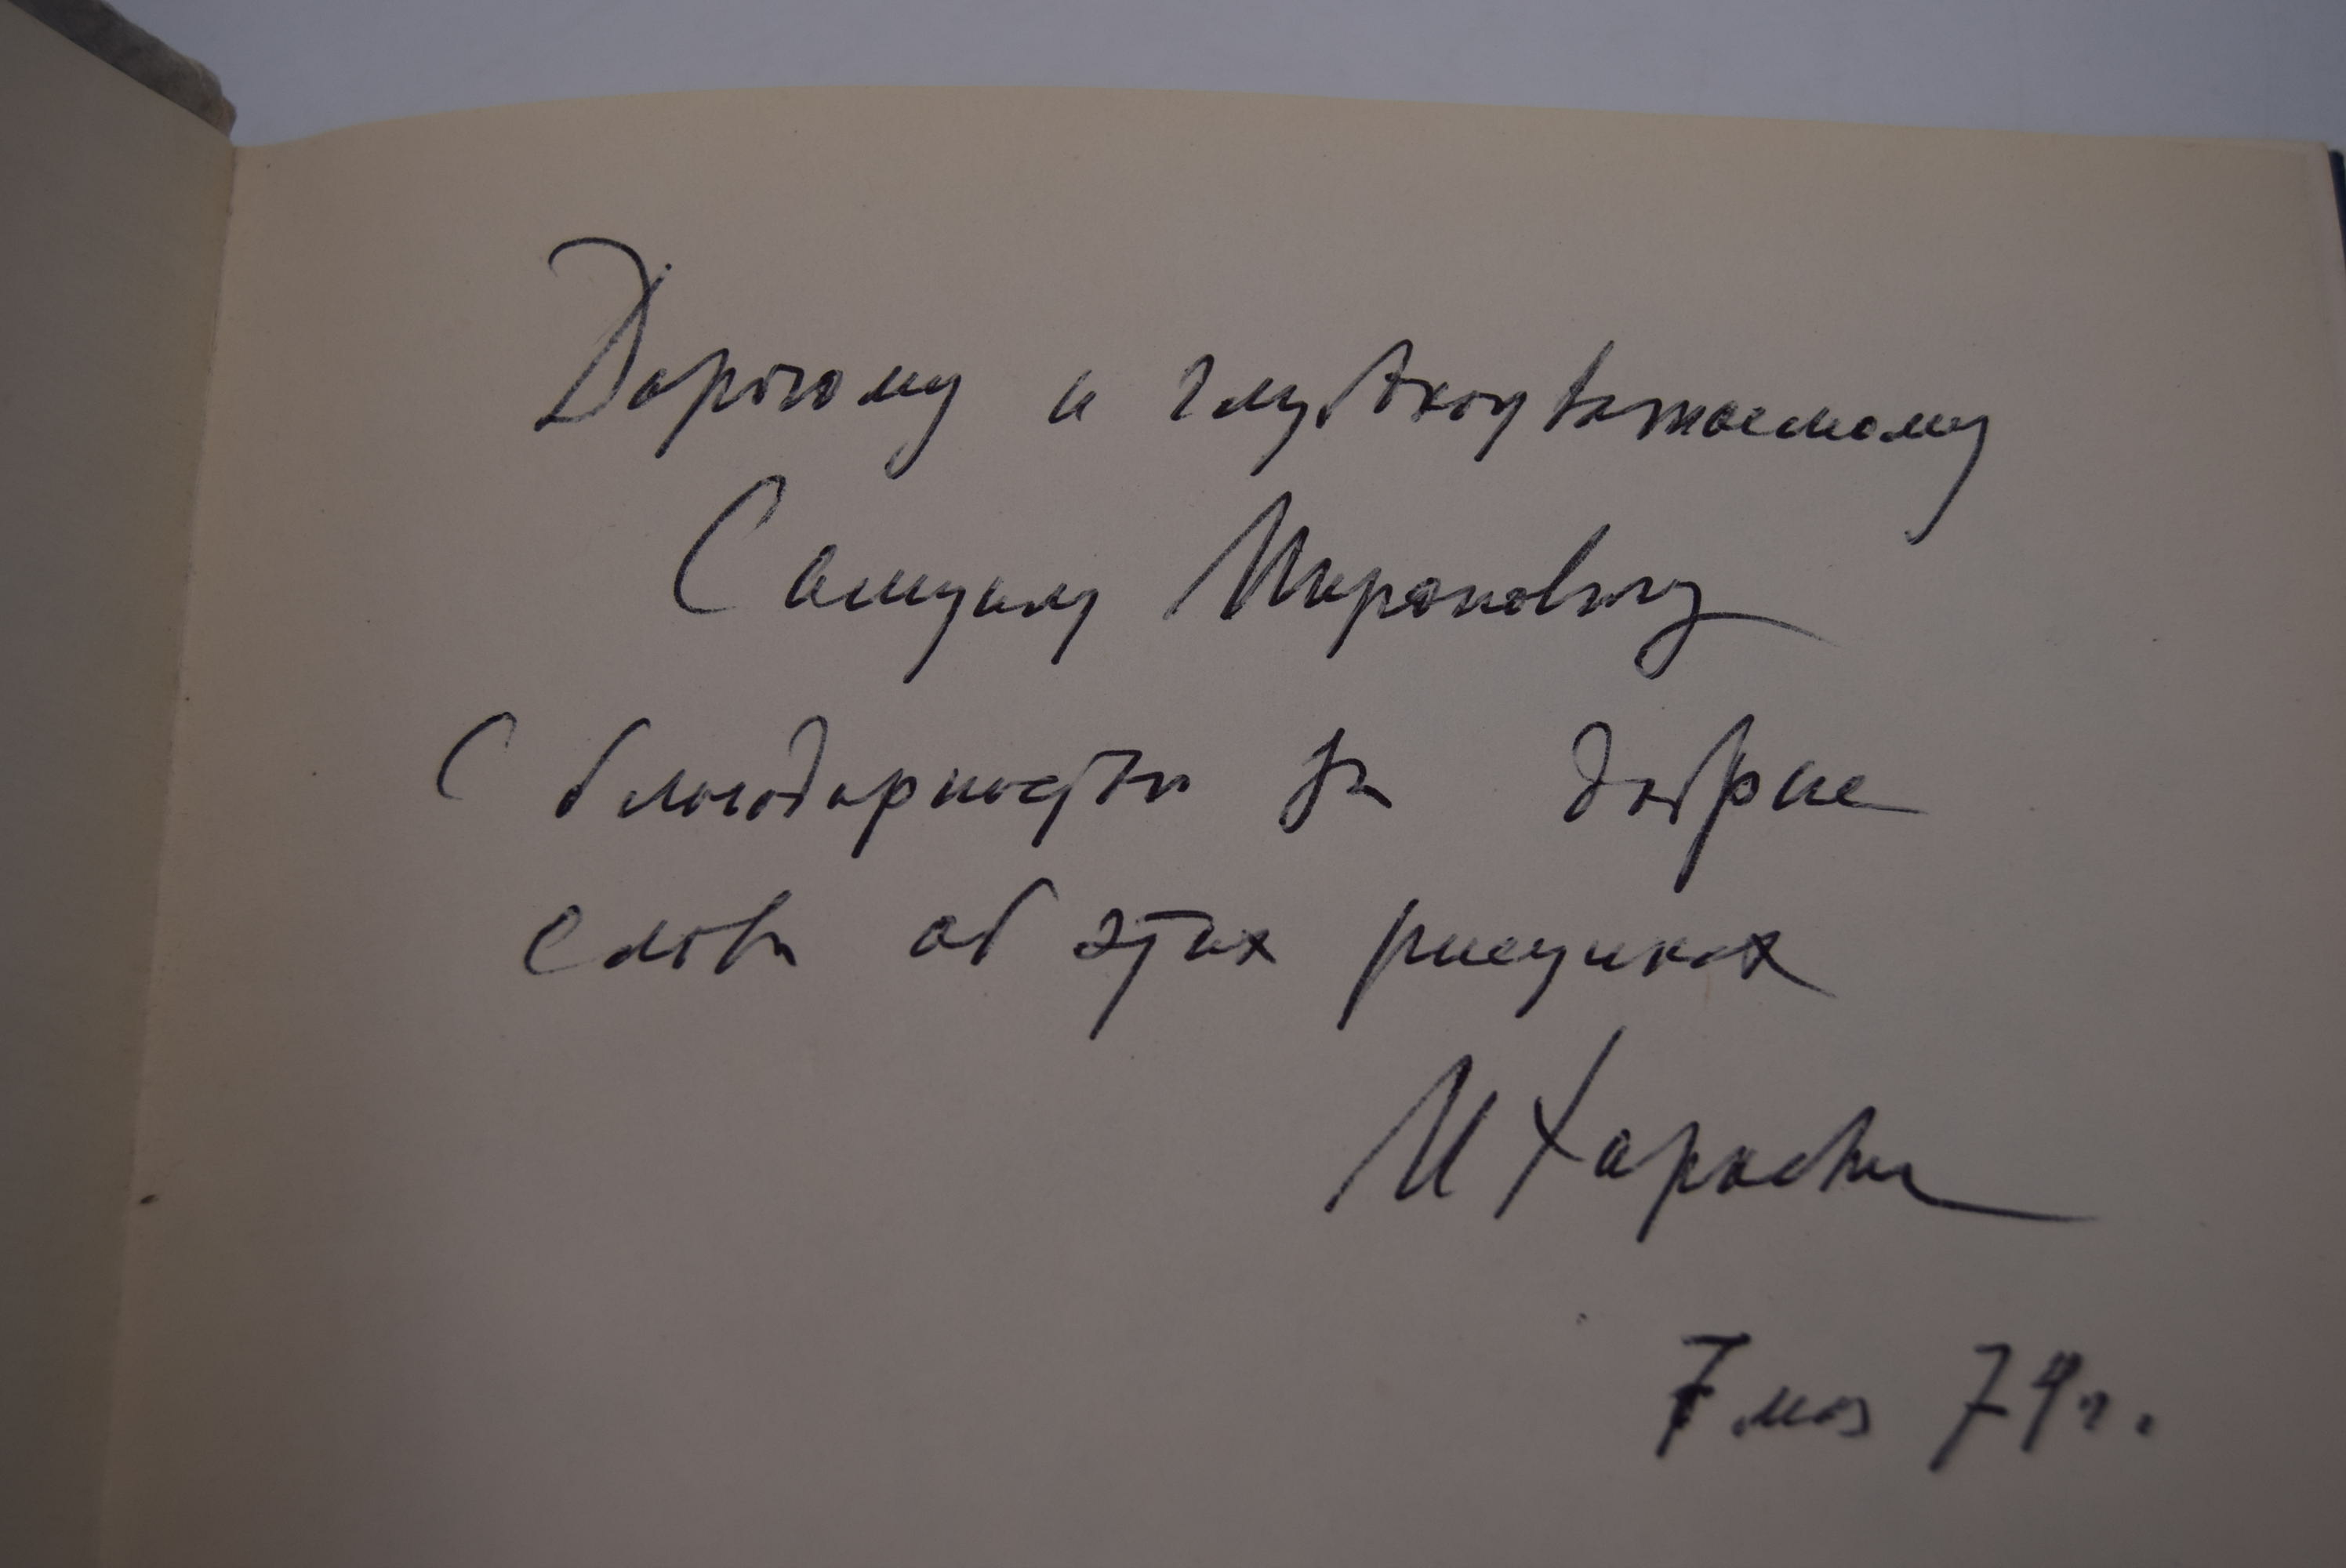 Дорогому и глубокоуважаемому
Самуилу Мироновичу
С благодарностью за добрые
слова об этих рисунках
И
7 мая 79 г.